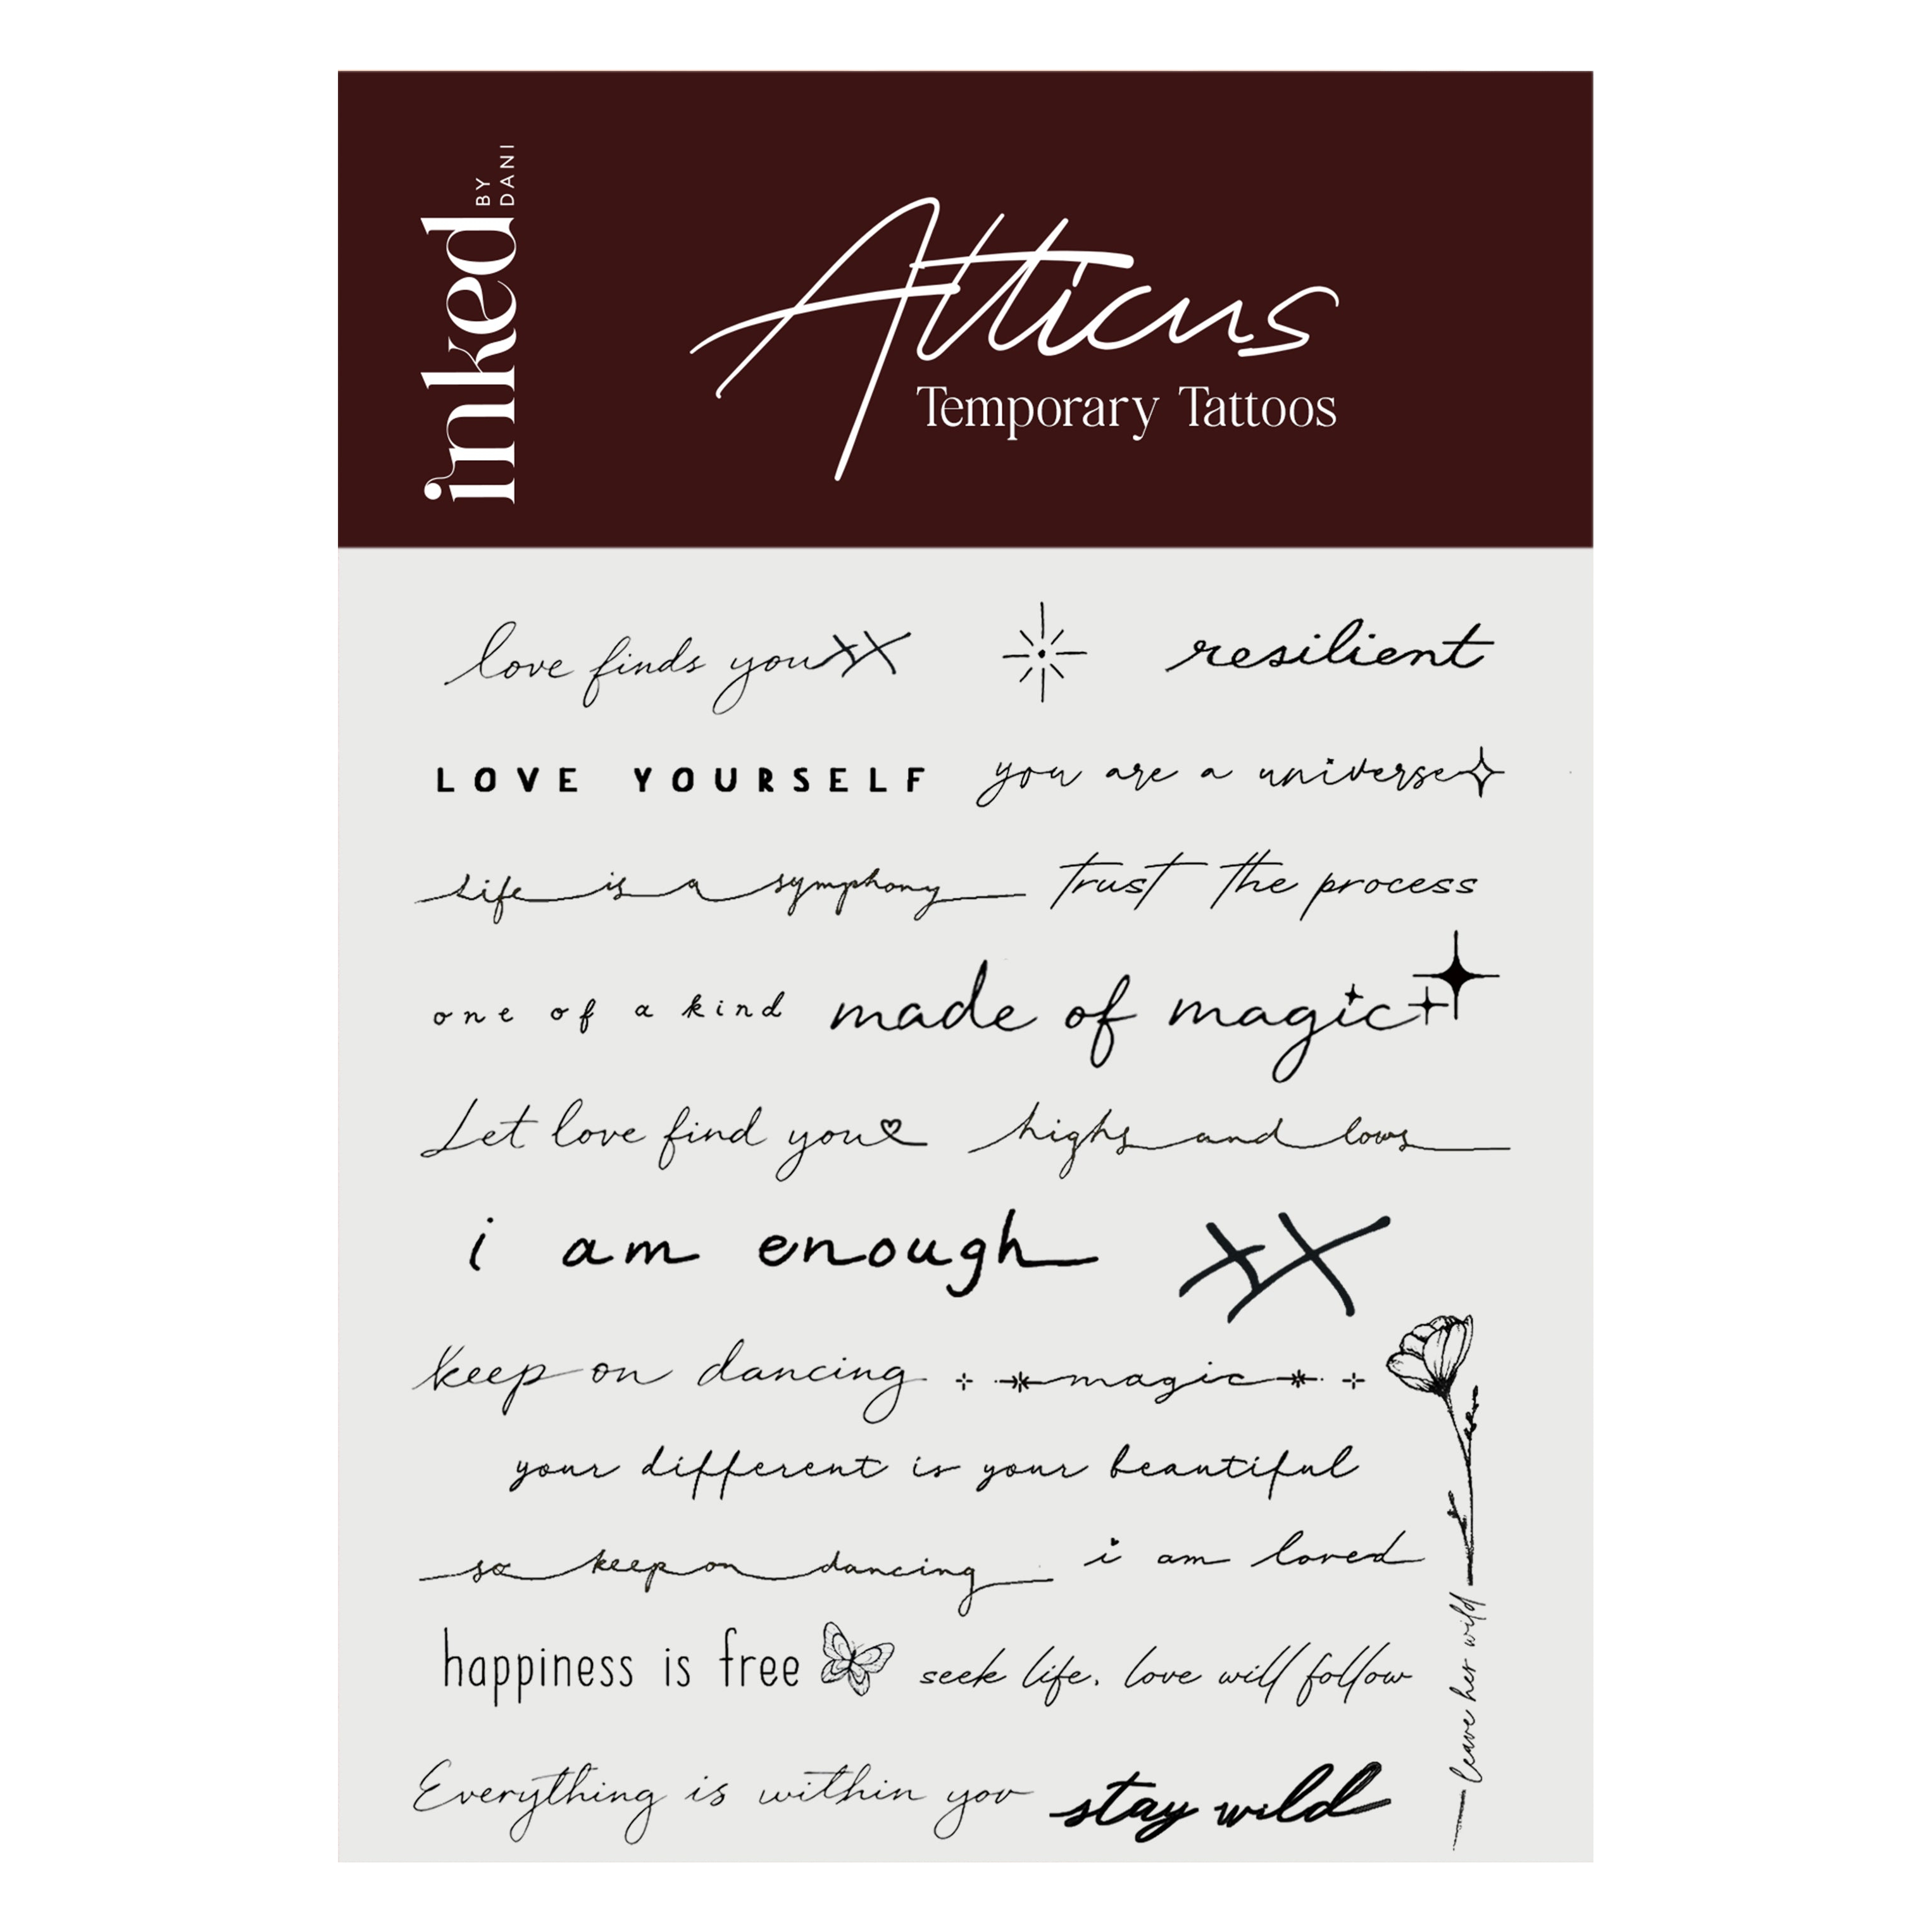 inked
BY
DANI
Atticus
Temporary Tattoos
love finds you xx
resilient
LOVE YOURSELF
you are a universe
life is a symphony
trust the process
one of a kind
made of magic
Let love find you
highs and lows
i am enough
xx
keep on dancing
magic
your different is your beautiful
so keep on dancing
i am loved
happiness is free
seek life. love will follow
leave her wild
Everything is within you
stay wild